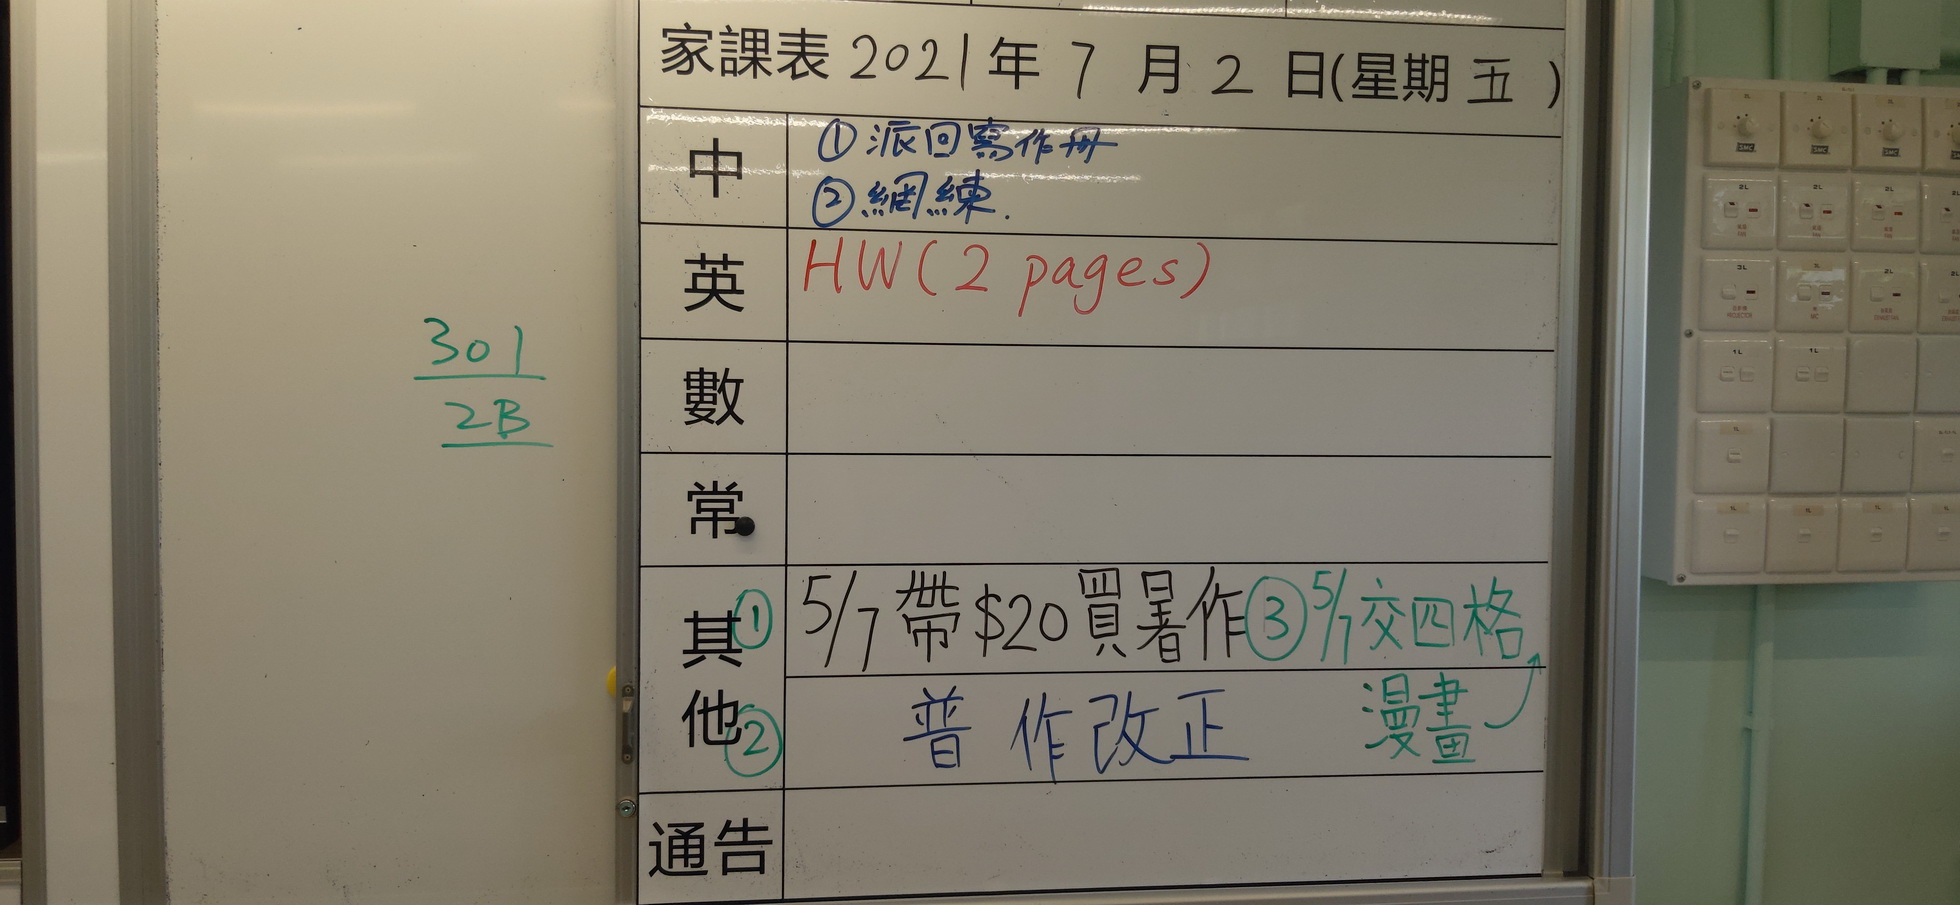 家課表 2021年 7 月 2 日(星期 五 )
中
①派回寫作冊
②網練.
英
HW(2 pages)
301
2B
數
常
其他
① 5/7 帶 $20 買暑作 ③ 5/7交四格
② 普 作改正 漫畫
通告